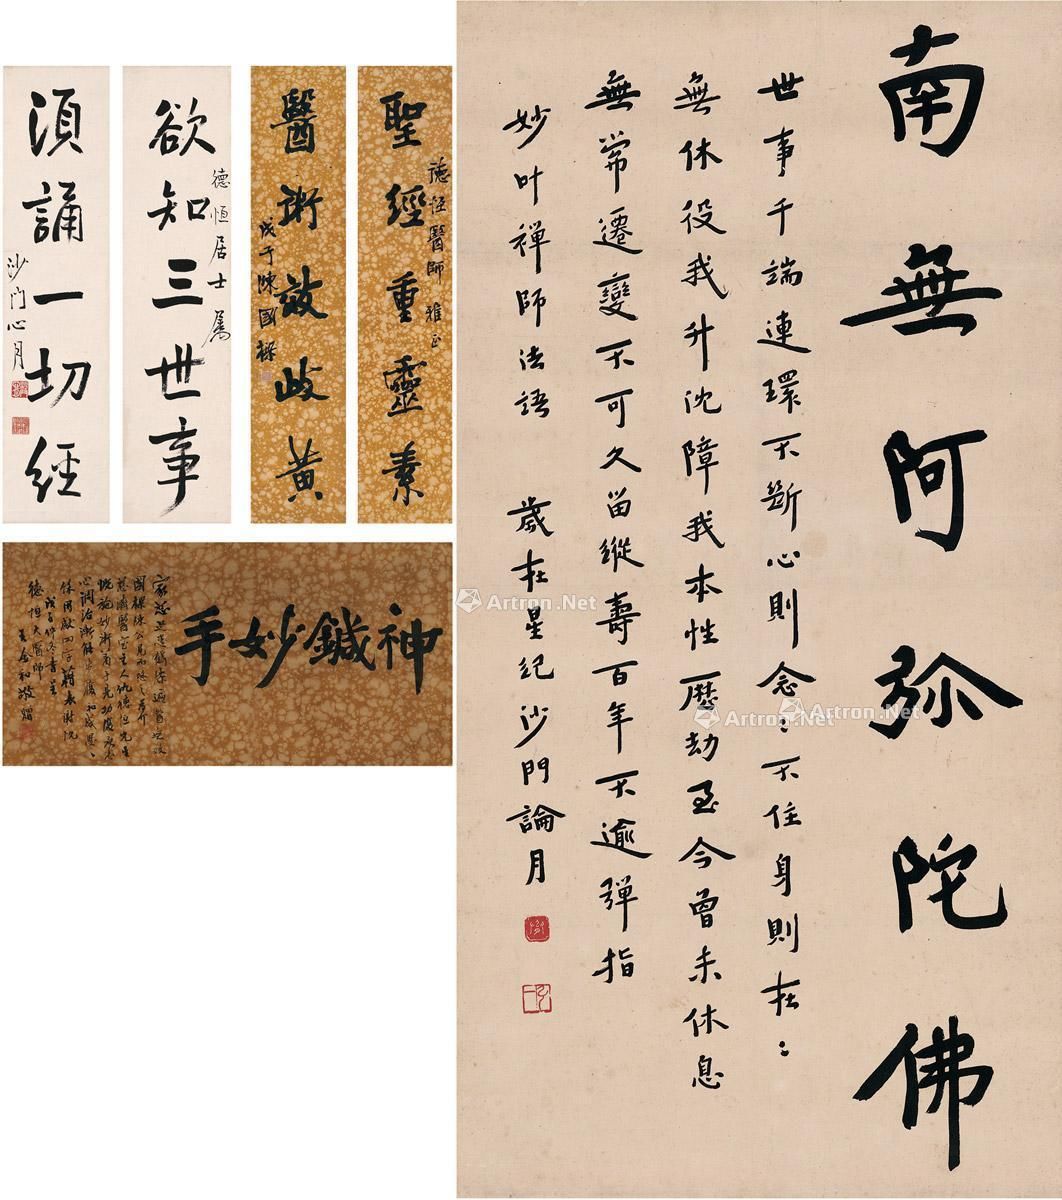 南無阿弥陀佛
世事千端連環不斷心則念〻不住身則在〻
無休役我升沈障我本性歷劫至今曾未休息
無常遷變不可久留縱壽百年不逾彈指
妙叶禅師法語 歲在星紀沙門論月
聖經重靈素
德恒醫師雅正
醫術啟歧黃
戊子陳國樑
欲知三世事
德恒居士属
須誦一切經
沙门心月
神鍼妙手
德恒大醫師
Artron.Net
Artron.Net
Artron.Net